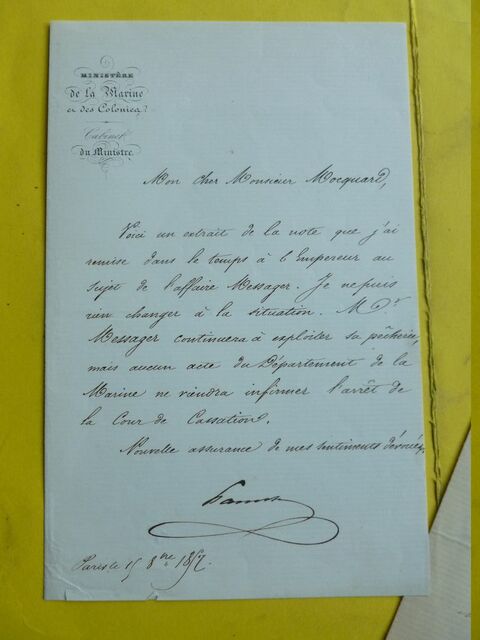 MINISTÈRE
de la Marine
et des Colonies
Cabinet
du Ministre
Mon cher Monsieur Mocquard,
Voici un extrait de la note que j'ai
remise dans le temps à l'Empereur au
sujet de l'affaire Messager. Je ne puis
rien changer à la situation. Mr
Messager continuera à exploiter sa pêcherie,
mais aucun acte du Département de la
Marine ne viendra infirmer l'arrêt de
la Cour de Cassation.
Nouvelle assurance de mes sentiments dévoués,
Paris le 15 8bre 185